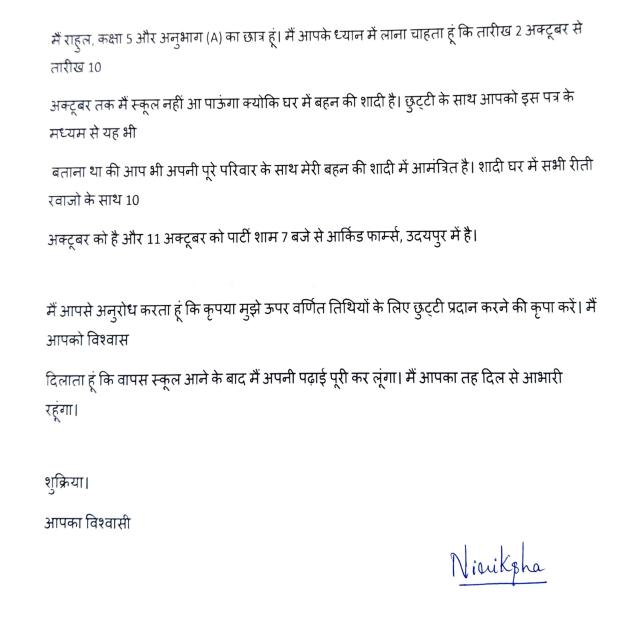 मैं राहुल, कक्षा 5 और अनुभाग (A) का छात्र हूं। मैं आपके ध्यान में लाना चाहता हूं कि तारीख 2 अक्टूबर से
तारीख 10
अक्टूबर तक मैं स्कूल नहीं आ पाऊंगा क्योकि घर में बहन की शादी है। छुट्टी के साथ आपको इस पत्र के
मध्यम से यह भी
बताना था की आप भी अपनी पूरे परिवार के साथ मेरी बहन की शादी में आमंत्रित है। शादी घर में सभी रीती
रवाजो के साथ 10
अक्टूबर को है और 11 अक्टूबर को पार्टी शाम 7 बजे से आर्किड फार्म्स, उदयपुर में है।
मैं आपसे अनुरोध करता हूं कि कृपया मुझे ऊपर वर्णित तिथियों के लिए छुट्टी प्रदान करने की कृपा करें। मैं
आपको विश्वास
दिलाता हूं कि वापस स्कूल आने के बाद मैं अपनी पढ़ाई पूरी कर लूंगा। मैं आपका तह दिल से आभारी
रहूंगा।
शुक्रिया।
आपका विश्वासी
Niriksha